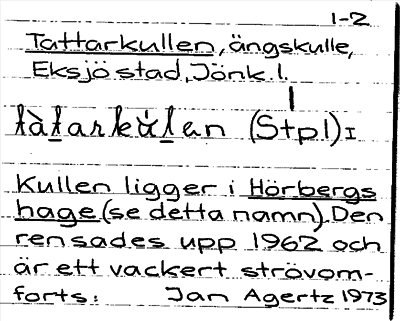 1-2
Tattarkullen, ängskulle,
Eksjö stad, Jönk. l.
tàtarkúlen (Stpl)I
Kullen ligger i Hörbergs
hage (se detta namn). Den
rensades upp 1962 och
är ett vackert strövom-
forts: Jan Agertz 1973